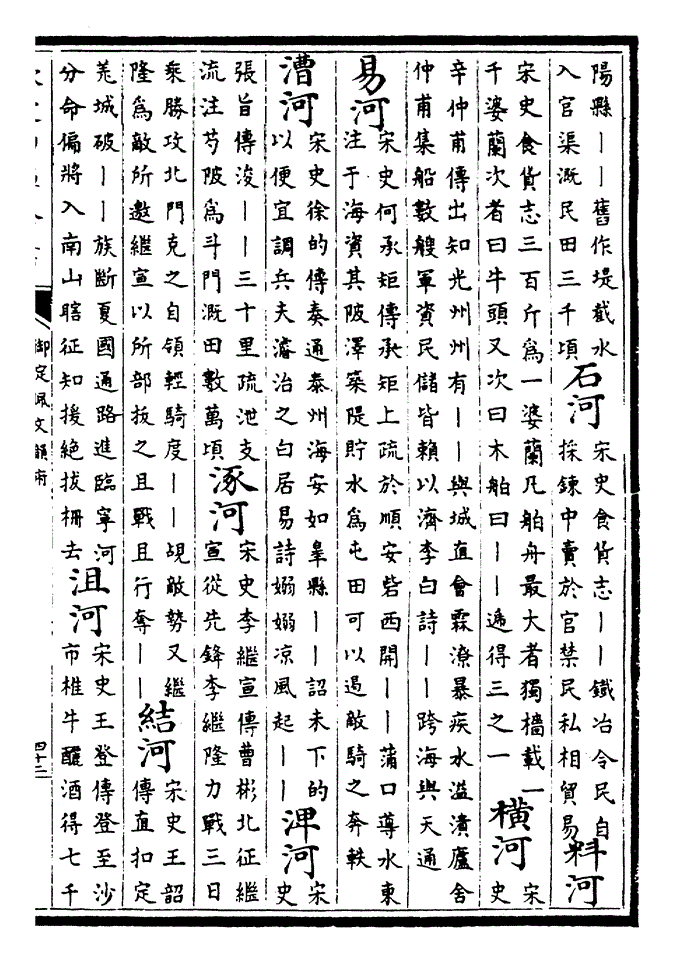 陽縣——舊作堤截水
入官渠溉民田三千頃
石河
宋史食貨志——鐵冶令民自
採鍊中賣於官禁民私相貿易
料河
宋史食貨志三百斤為一婆蘭凡舶舟最大者獨檣載一
千婆蘭次者曰牛頭又次曰木舶曰——遞得三之一
橫河
宋
史
辛仲甫傳出知光州州有——與城直會霖潦暴疾水溢潰廬舍
仲甫集船數艘軍資民儲皆賴以濟李白詩——跨海與天通
易河
宋史何承矩傳承矩上疏於順安砦西開——蒲口導水東
注于海資其陂澤築隄貯水為屯田可以遏敵騎之奔軼
漕河
宋史徐的傳奏通泰州海安如皋縣——詔未下的
以便宜調兵夫濬治之白居易詩嫋嫋凉風起——
渒河
宋
史
張旨傳浚——三十里疏泄支
流注芍陂為斗門溉田數萬頃
涿河
宋史李繼宣傳曹彬北征繼
宣從先鋒李繼隆力戰三日
乘勝攻北門克之自領輕騎度——覘敵勢又繼
隆為敵所邀繼宣以所部拔之且戰且行奪——
結河
宋史王韶
傳直扣定
羌城破——族斷夏國通路進臨寧河
分命偏將入南山瞎征知援絕拔柵去
沮河
宋史王登傳登至沙
市椎牛釃酒得七千
御定佩文韻府
四十二